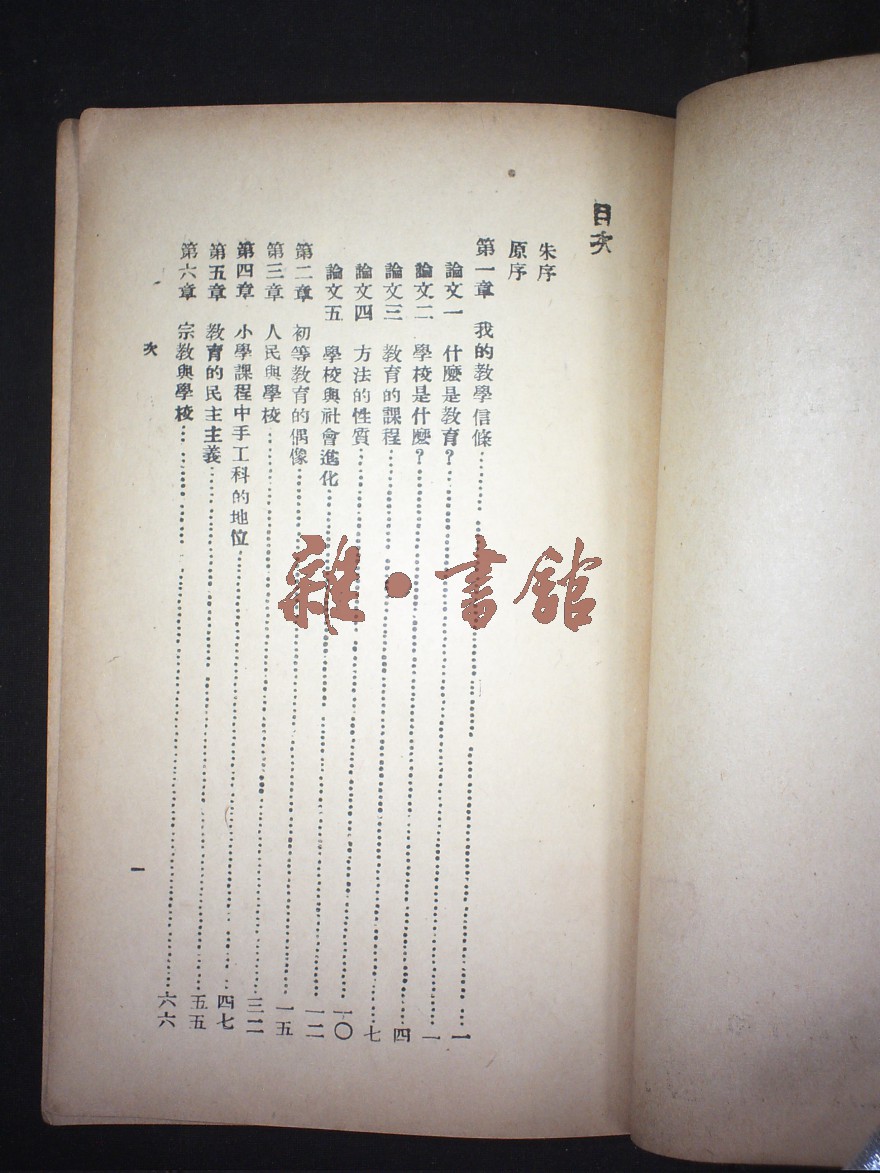 目次
朱序
原序
第一章 我的教學信條……一
論文一 什麼是教育？……一
論文二 學校是什麼？……四
論文三 教育的課程……七
論文四 方法的性質……一〇
論文五 學校與社會進化……一二
第二章 初等教育的偶像……一五
第三章 人民與學校……三二
第四章 小學課程中手工科的地位……四七
第五章 教育的民主主義……五五
第六章 宗教與學校……六六
次
一
雜·書館